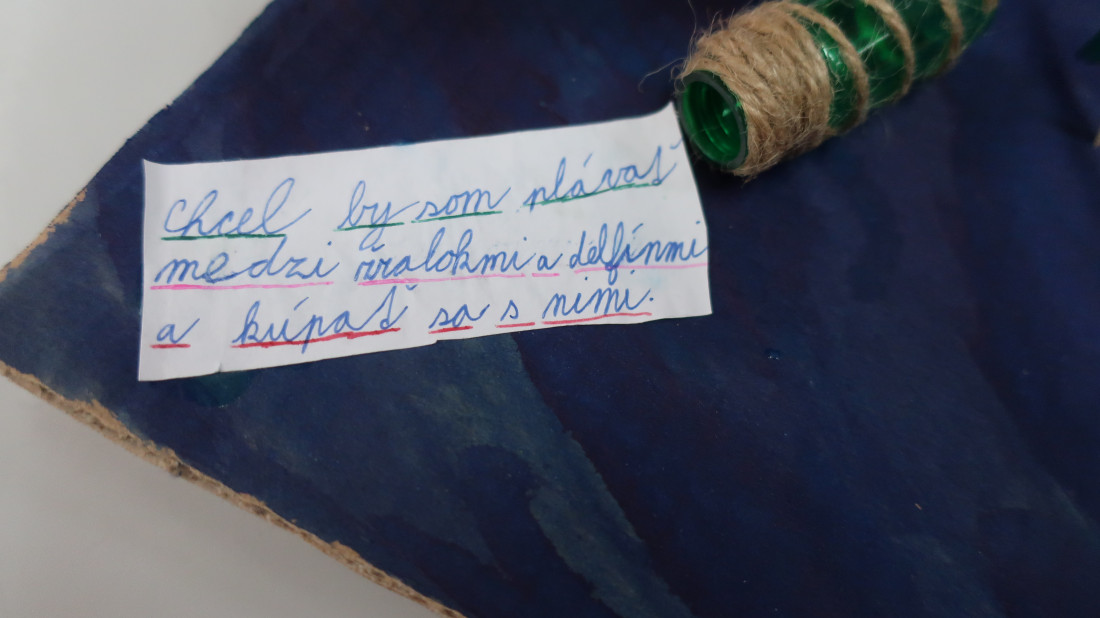 chcel by som plávať
medzi žralokmi a delfínmi
a kúpať sa s nimi.